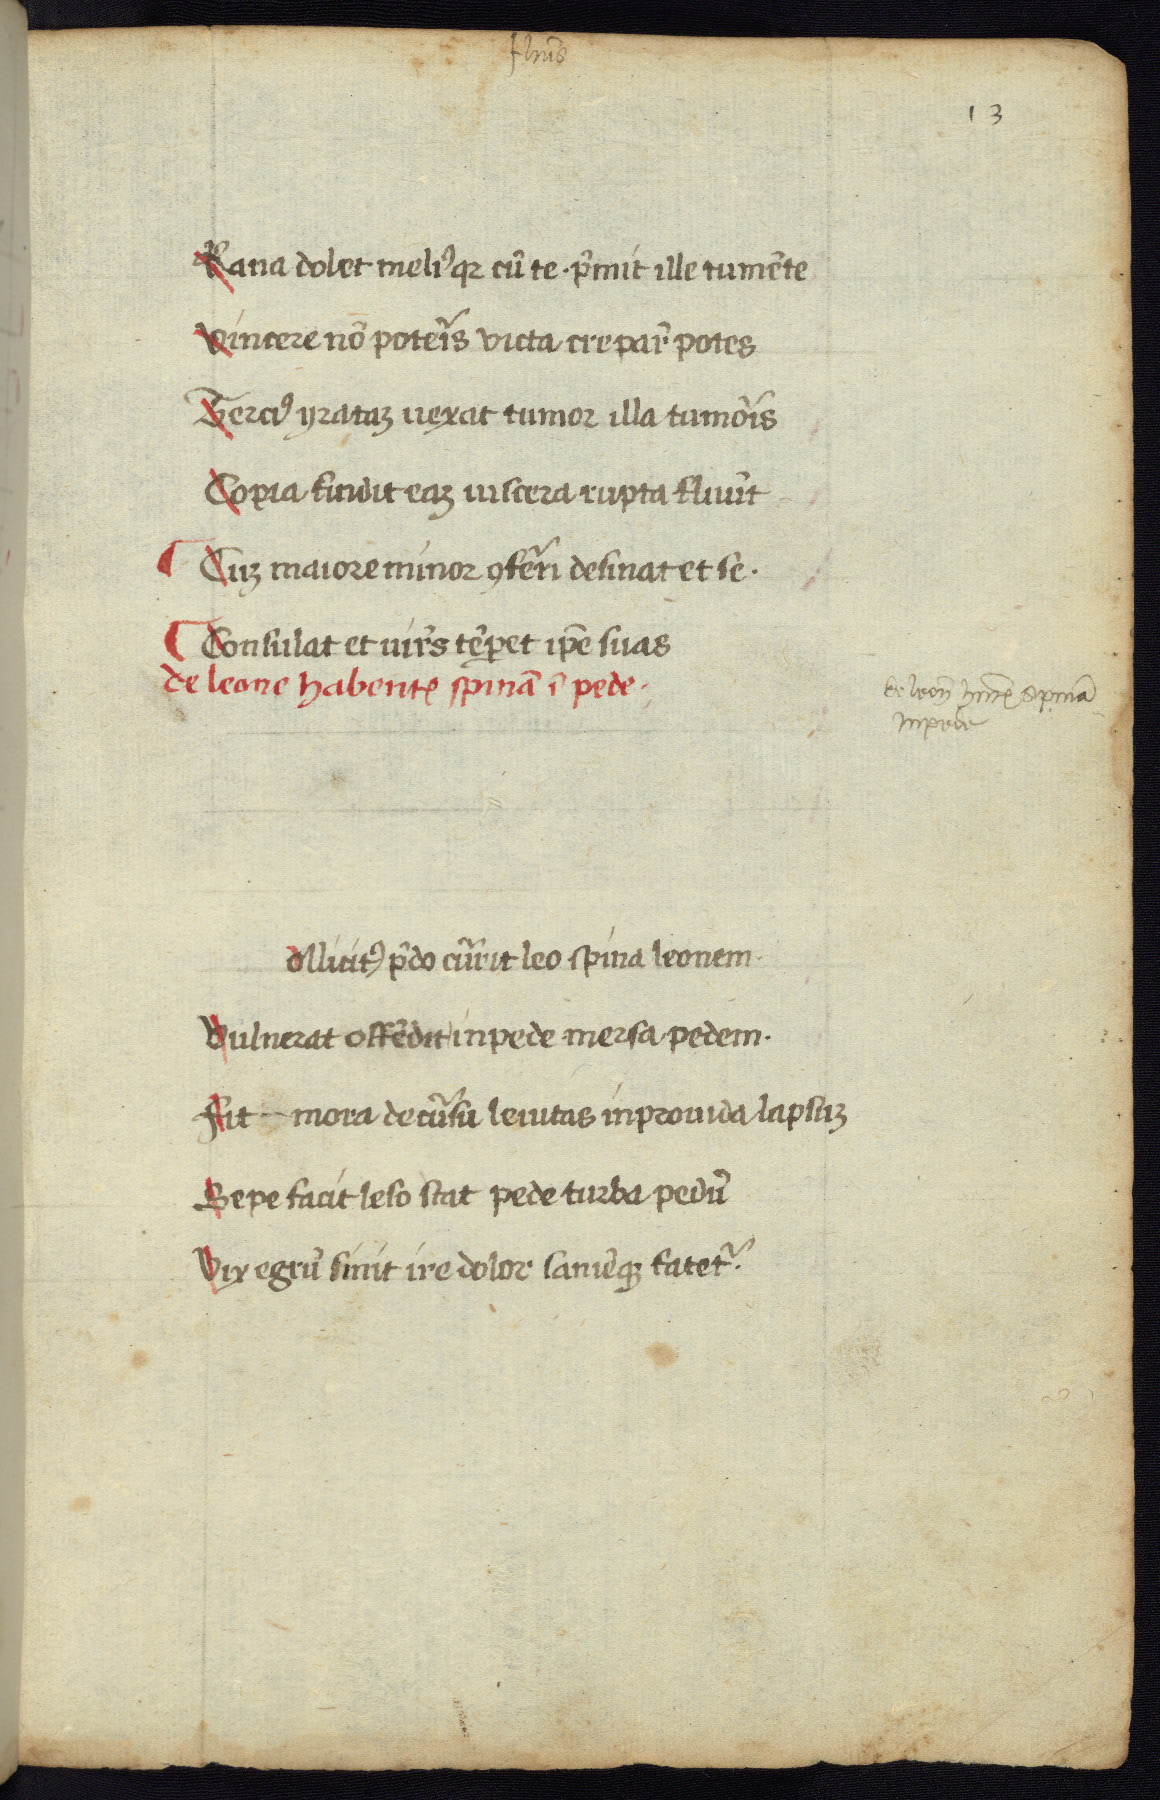 13
Rana dolet meliꝰqꝫ cū te · p̄mit ille tumēte
Vincere nō poteris victa crepar̄ potes
Terciꝰ yrataꝫ uexat tumor illa tumōis
Copia fundit eaꝫ uiscera rupta fluūt
¶ Cuꝫ maiore minor ꝯferri desinat et se ·
¶ Consulat et uir̄s tēꝑet ip̄e suas
de leone habentē spinā ī pede ·
de leon̄ hn̄tē spinā
in pede
ollicitꝰ p̄do cūrit leo spina leonem
Vulnerat offēdit in pede mersa pedem ·
Fit mora de cūsu leuitas inprouida lapsuꝫ
Sepe facit leso stat pede turba pedū
Vix egrū sinit ire dolor saniēqꝫ fatet᷑ ·